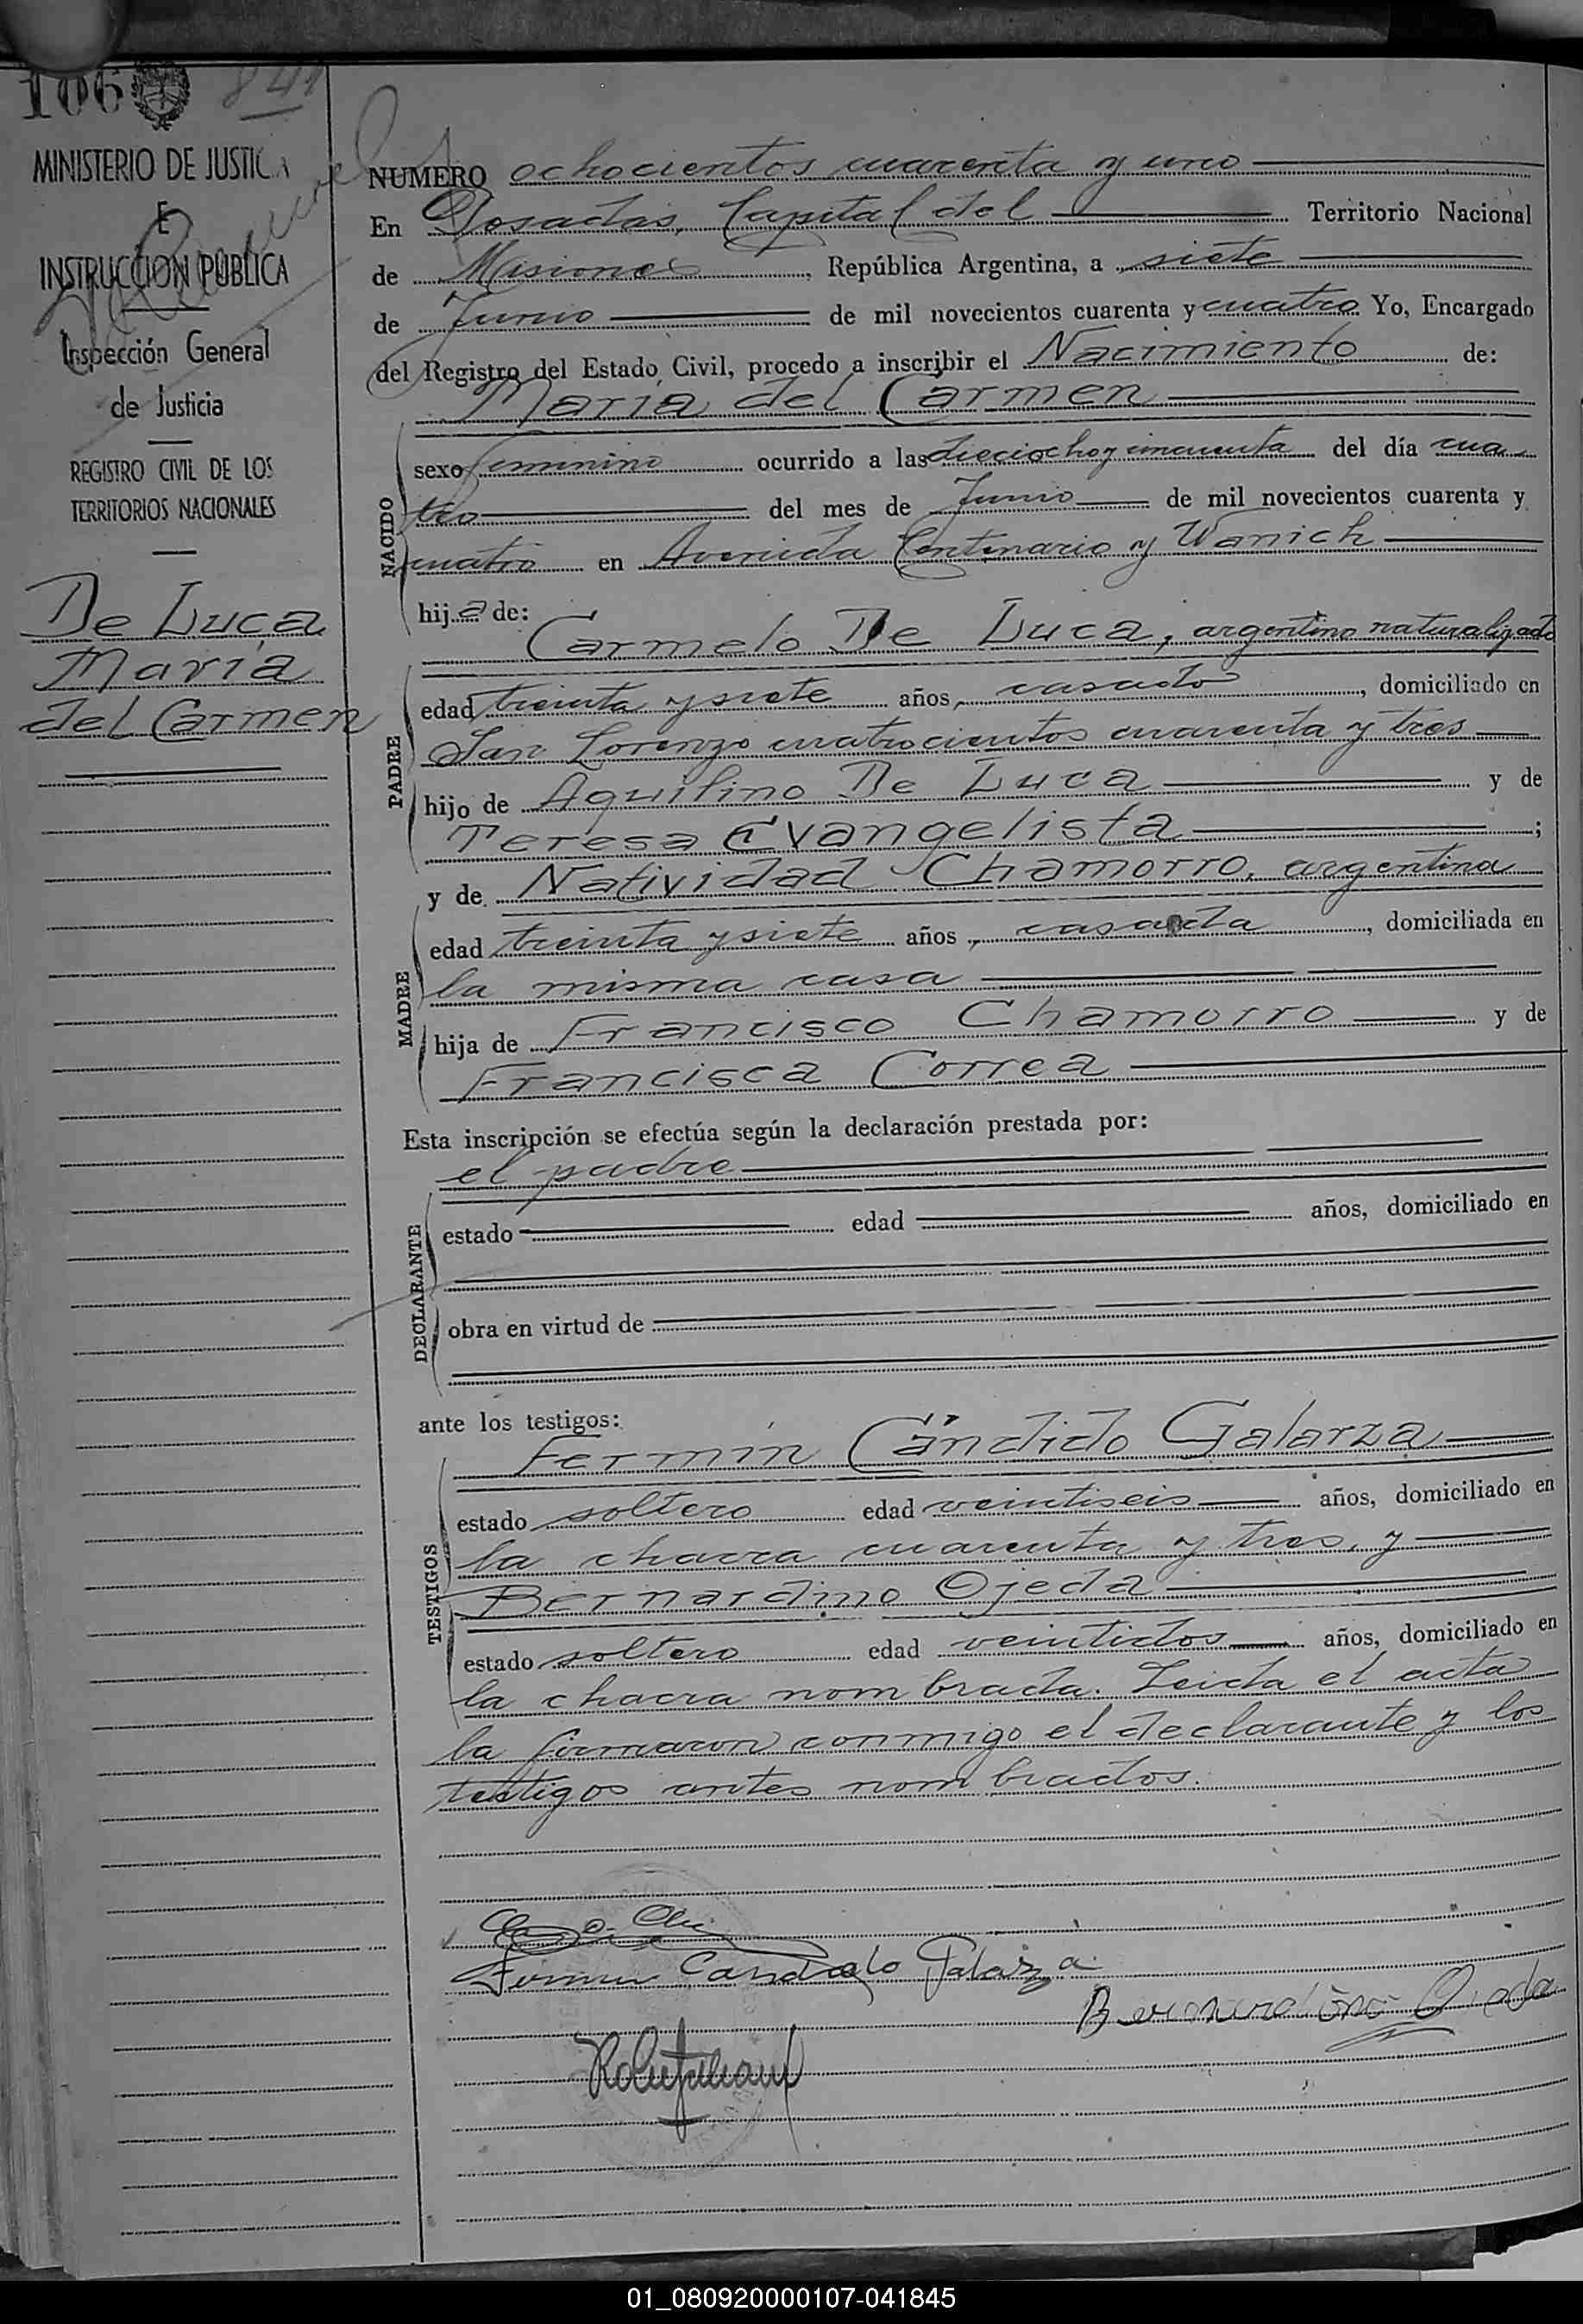 106 841
MINISTERIO DE JUSTICIA
E
INSTRUCCION PUBLICA
Inspección General
de Justicia
REGISTRO CIVIL DE LOS
TERRITORIOS NACIONALES
De Luca
María
del Carmen
NUMERO ochocientos cuarenta y uno
En Posadas, Capital del Territorio Nacional
de Misiones, República Argentina, a siete
de Junio de mil novecientos cuarenta y cuatro Yo, Encargado
del Registro del Estado Civil, procedo a inscribir el Nacimiento de:
María del Carmen
NACIDO
sexo femenino ocurrido a las dieciocho y cincuenta del día cua
tro del mes de Junio de mil novecientos cuarenta y
cuatro en Avenida Centenario y Wanich
hija de:
Carmelo De Luca, argentino naturalizado
PADRE
edad treinta y siete años, casado, domiciliado en
San Lorenzo cuatrocientos cuarenta y tres
hijo de Aquilino De Luca y de
Teresa Evangelista;
y de Natividad Chamorro, argentina
MADRE
edad treinta y siete años, casada, domiciliada en
la misma casa
hija de Francisco Chamorro y de
Francisca Correa
Esta inscripción se efectúa según la declaración prestada por:
el padre
DECLARANTE
estado edad años, domiciliado en
obra en virtud de
ante los testigos:
Fermín Cándido Galarza
TESTIGOS
estado soltero edad veintiseis años, domiciliado en
la chacra cuarenta y tres, y
Bernardino Ojeda
estado soltero edad veintidos años, domiciliado en
la chacra nombrada. Leida el acta
la firmaron conmigo el declarante y los
testigos antes nombrados.
Fermin Candido Galarza
Bernardino Ojeda
01_080920000107-041845